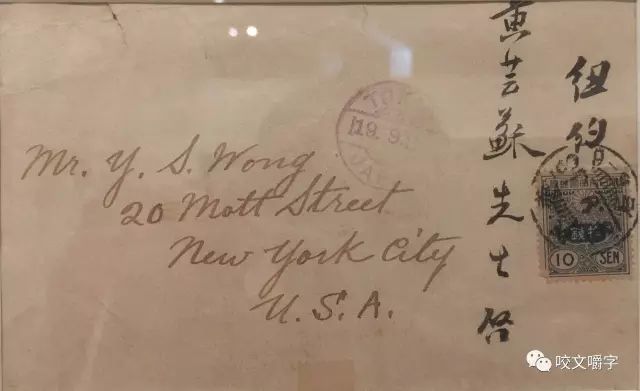 紐約
黄芸蘇先生啓
Mr. Y. S. Wong
20 Mott Street
New York City
U. S. A.
19. 9.
10 SEN
咬文嚼字